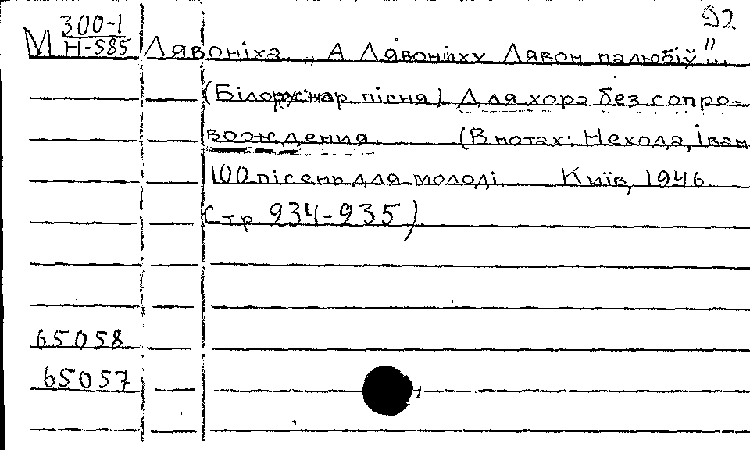 92
М 300-1
Н-585
Лявоніха „А Лявоніху Лявон палюбіў"...
(Білоруськая пісня) Для хора без сопро-
вождения (В нотах: Нехода, Іван
100 пісень для молоді Київ, 1946
Стр 934-935)
65058
65057